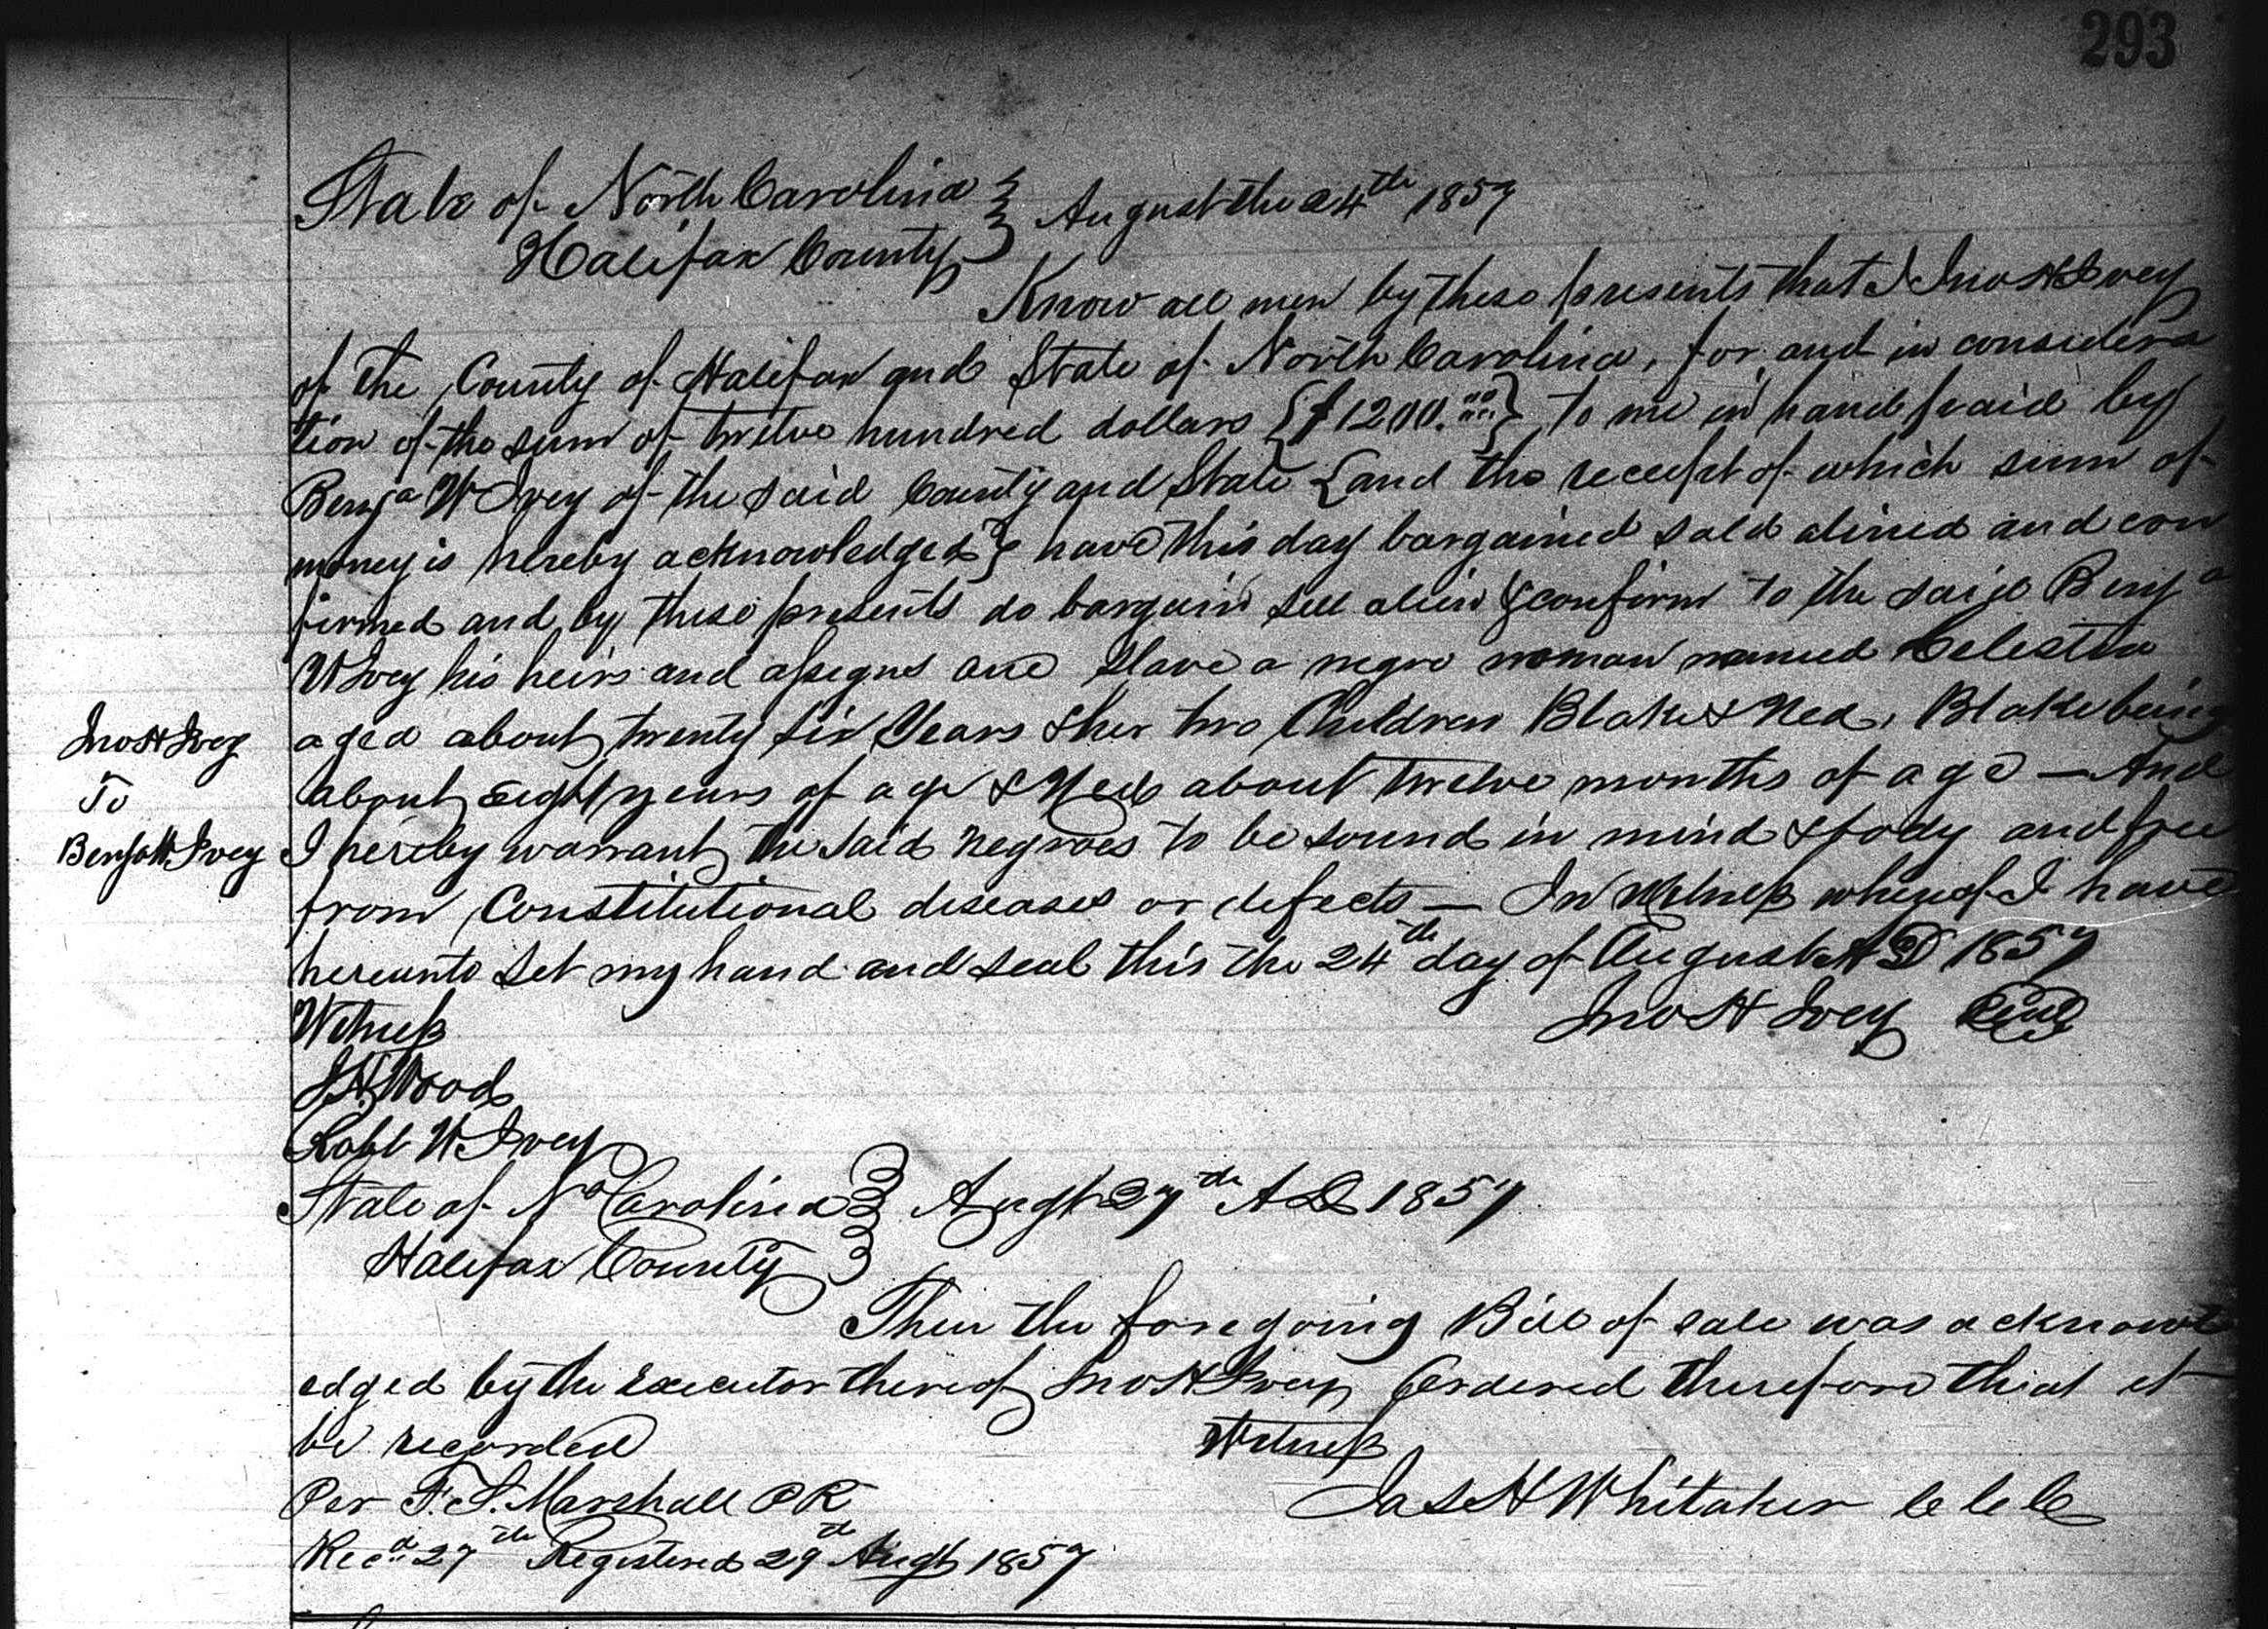 293
State of North Carolina
Halifax County
August the 24th 1857
Know all men by these presents that I Jno H Ivey
of the County of Halifax and State of North Carolina, for and in considera
tion of the sum of twelve hundred dollars {$1200.00} to me in hand paid by
Benja W Ivey of the said County and State {and the receipt of which sum of
money is hereby acknowledged} have this day bargained sold aliened and con
firmed and by these presents do bargain sell alien & confirm to the said Benja
W Ivey his heirs and assigns one slave a negro woman named Celestia
aged about twenty six Years & her two Children Blake & Ned, Blake being
about eight years of age & Ned about twelve months of age — And
I hereby warrant the said negroes to be sound in mind & body and free
from Constitutional diseases or defects — In Witness whereof I have
hereunto set my hand and seal this the 24th day of August A D 1857
Jno H Ivey
To
Benja W. Ivey
Jno H Ivey Seal
Witness
J. H. Wood
Robt W Ivey
State of No Carolina
Halifax County
Augt 27th A D 1857
Then the foregoing Bill of sale was acknowl
edged by the Executor thereof Jno H Ivey Ordered therefore that it
be recorded
Witness
Per F. S. Marshall P R
Jas H Whitaker C C C
Recd 27th Registered 29th Augt 1857